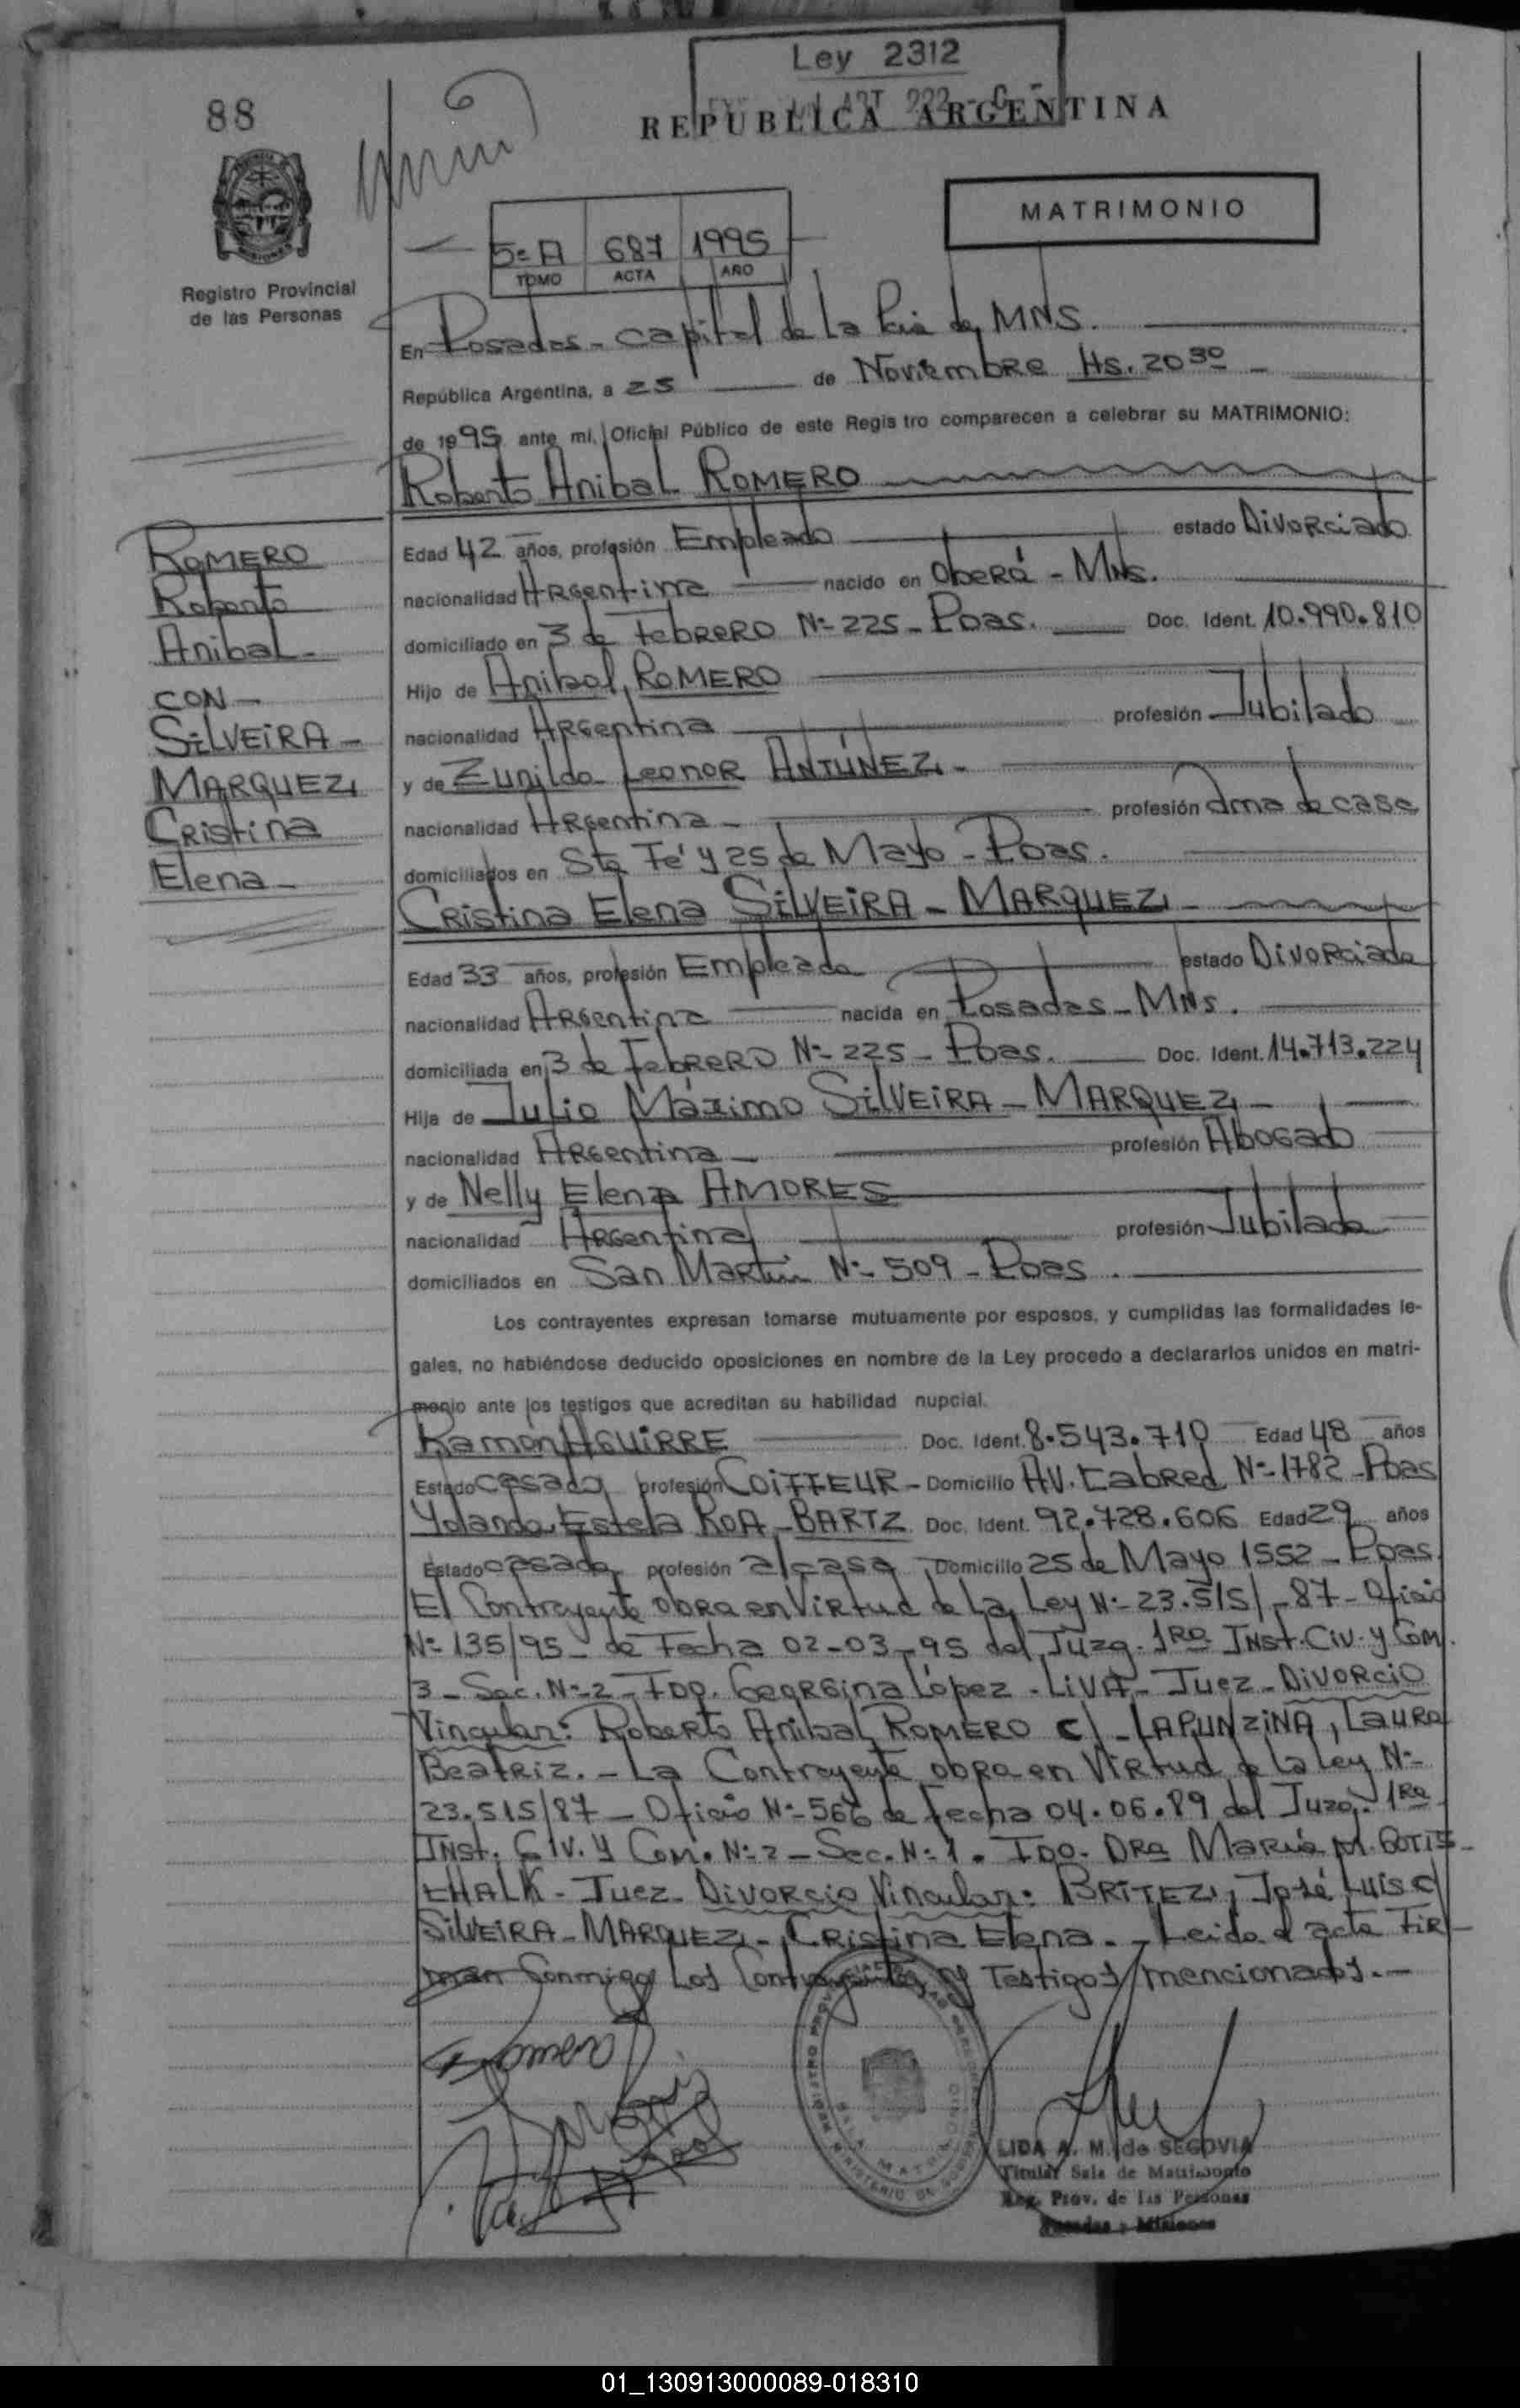 Ley 2312
88
REPUBLICA ARGENTINA
MATRIMONIO
5º A 687 1995
TOMO ACTA AÑO
Registro Provincial
de las Personas
En Posadas - capital de la Pcia de MNS.
República Argentina, a 25 de Noviembre Hs. 20 30
de 1995 ante mi, Oficial Público de este Registro comparecen a celebrar su MATRIMONIO:
Roberto Anibal ROMERO
ROMERO
Roberto
Anibal -
CON -
SILVEIRA -
MARQUEZ
Cristina
Elena -
Edad 42 años, profesión Empleado estado Divorciado
nacionalidad Argentina nacido en Oberá - Mns.
domiciliado en 3 de Febrero Nº 225 - Pdas. Doc. Ident. 10.990.810
Hijo de Anibal ROMERO
nacionalidad Argentina profesión Jubilado
y de Zunilda Leonor ANTÚNEZ -
nacionalidad Argentina - profesión ama de casa
domiciliados en Sta Fé y 25 de Mayo - Pdas.
Cristina Elena SILVEIRA - MARQUEZ -
Edad 33 años, profesión Empleada estado Divorciada
nacionalidad Argentina nacida en Posadas - MNS.
domiciliada en 3 de Febrero Nº 225 - Pdas. Doc. Ident. 14.713.224
Hija de Julio Máximo SILVEIRA - MARQUEZ -
nacionalidad Argentina - profesión Abogado
y de Nelly Elena AMORES
nacionalidad Argentina profesión Jubilada
domiciliados en San Martin Nº 509 - Pdas.
Los contrayentes expresan tomarse mutuamente por esposos, y cumplidas las formalidades le-
gales, no habiéndose deducido oposiciones en nombre de la Ley procedo a declararlos unidos en matri-
monio ante los testigos que acreditan su habilidad nupcial.
Ramón AGUIRRE Doc. Ident. 8.543.710 Edad 48 años
Estado casado profesión COIFFEUR - Domicilio AV. Cabred Nº 1782 - Pdas
Yolanda Estela ROA - BARTZ Doc. Ident. 92.728.606 Edad 29 años
Estado casada profesión a/casa Domicilio 25 de Mayo 1552 - Pdas.
El Contrayente obra en Virtud de la Ley Nº 23.515/-87 - Oficio
Nº 135/95 - de Fecha 02-03-95 del Juzg. 1ra Inst. Civ. y Com.
3 - Sec. Nº 2 - FDO. Georgina López - LIVA - Juez - Divorcio
Vincular: Roberto Anibal ROMERO c/ - LAPUNZINA, Laura
Beatriz. - La Contrayente obra en Virtud de la Ley Nº
23.515/87 - Oficio Nº 566 de fecha 04.06.89 del Juzg. 1ra
Inst. Civ. y Com. Nº 2 - Sec. Nº 1. FDO. Dra María M. BOTIS-
CHALK - Juez - Divorcio Vincular: BRITEZ, José Luis c/
SILVEIRA - MARQUEZ - Cristina Elena. - Leida el acta FIR-
man Conmigo Los Contrayentes y Testigos mencionados. -
LIDA A. M. de SEGOVIA
Titular Sala de Matrimonio
Reg. Prov. de las Personas
Posadas - Misiones
01_130913000089-018310